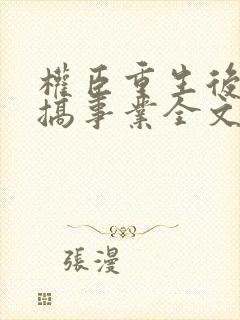 權臣重生後
搞事業全文
張漫